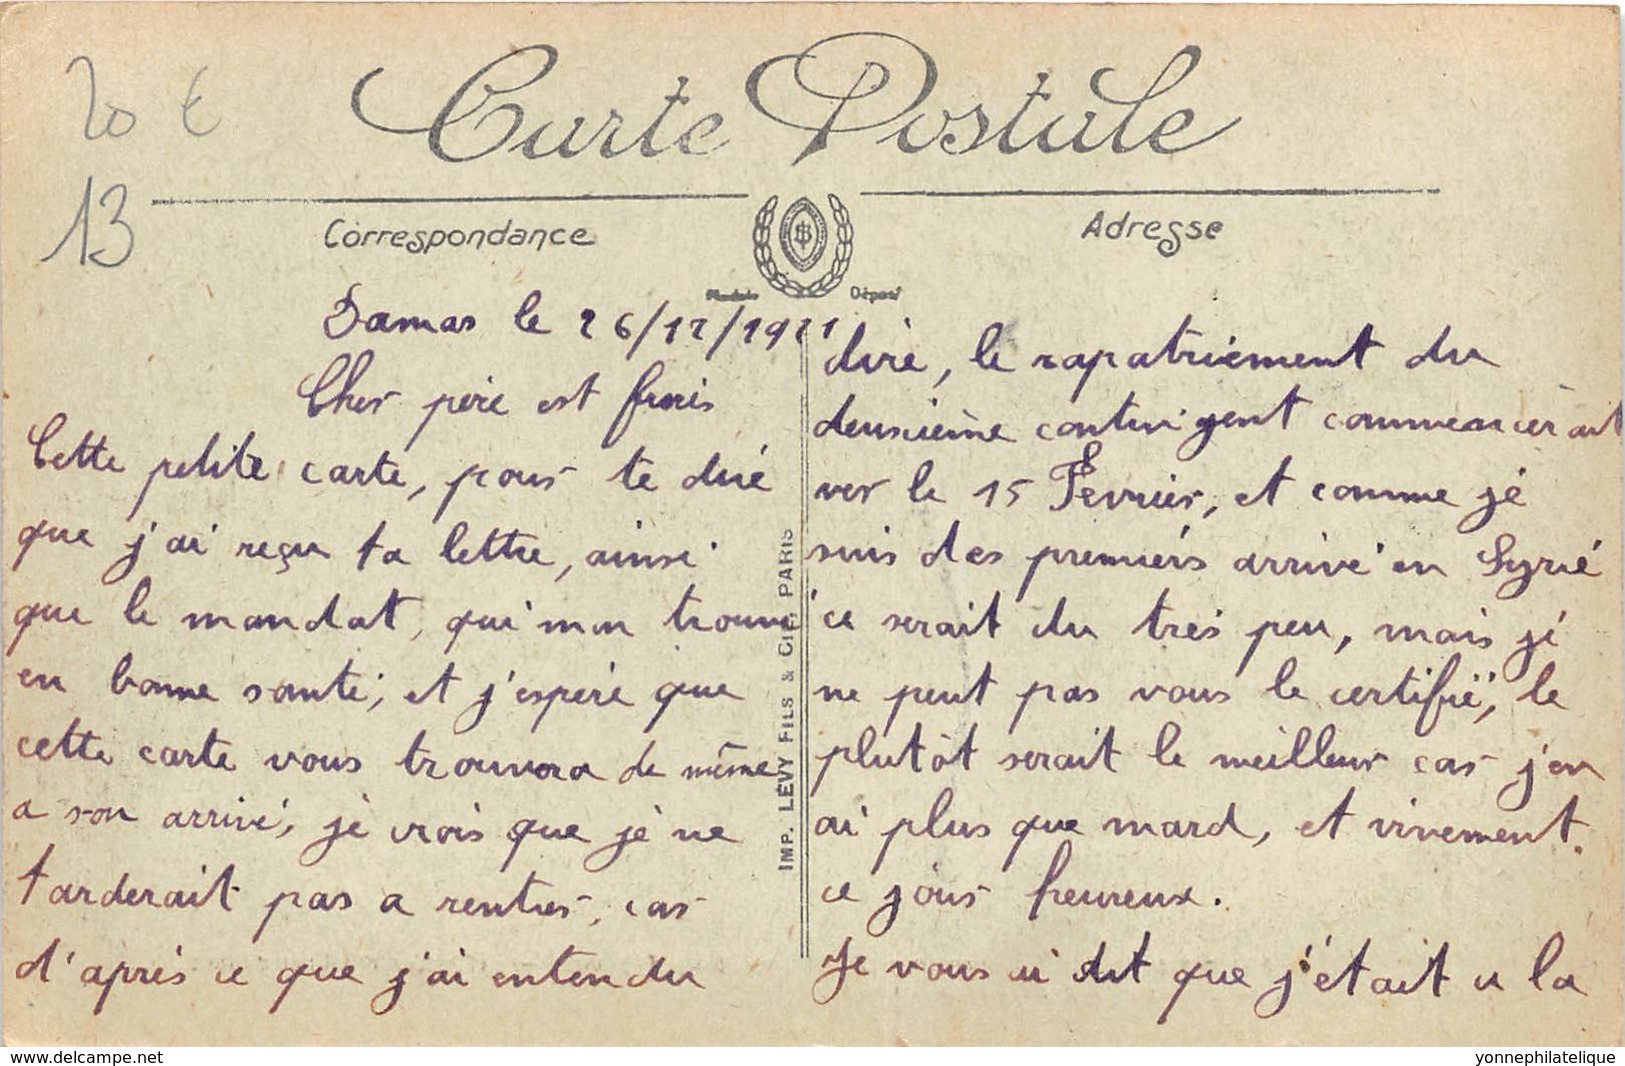 20 €
13
Carte Postale
Correspondance
Adresse
Modèle Déposé
Damas le 26/12/1921
Cher père est frais
Cette petite carte, pour te diré
que j'ai reçu ta lettre, ainsi
que le mandat, qui mon trouve
en bonne santé, et j'espére que
cette carte vous trouvera de même
a son arrivé, jé crois que jé ne
tarderait pas a rentrer, car
d'aprés ce que j'ai entendu
IMP. LÉVY FILS & CIE, PARIS
diré, le rapatriément du
deuxième contingent commencérait
ver le 15 Fevrier, et comme jé
suis des premiérs arrivé en Syrié
ce serait du trés peu, mais jé
ne peut pas vous le certifié, le
plutôt serait le meilleur car j'en
ai plus que mard, et vivement
ce jour heureux.
Je vous ai dit que j'était a la
www.delcampe.net
yonnephilatelique